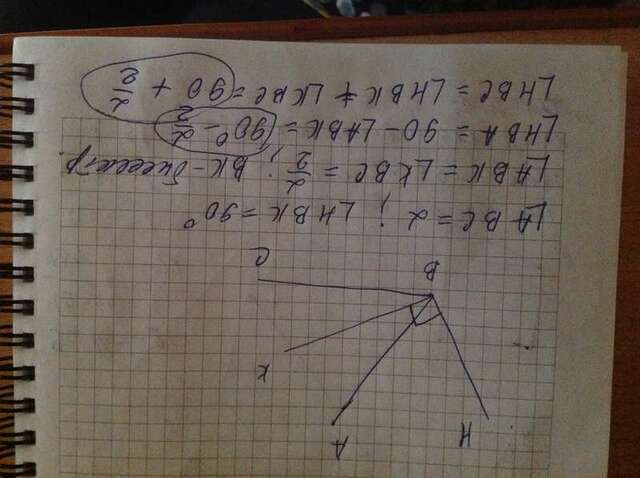 H
A
K
B
C
∠ABC = α ; ∠HBK = 90°
∠ABK = ∠KBC = α/2 ; BK - биссектр.
∠HBA = 90 - ∠ABK = 90° - α/2
∠HBC = ∠HBK + ∠KBC = 90 + α/2